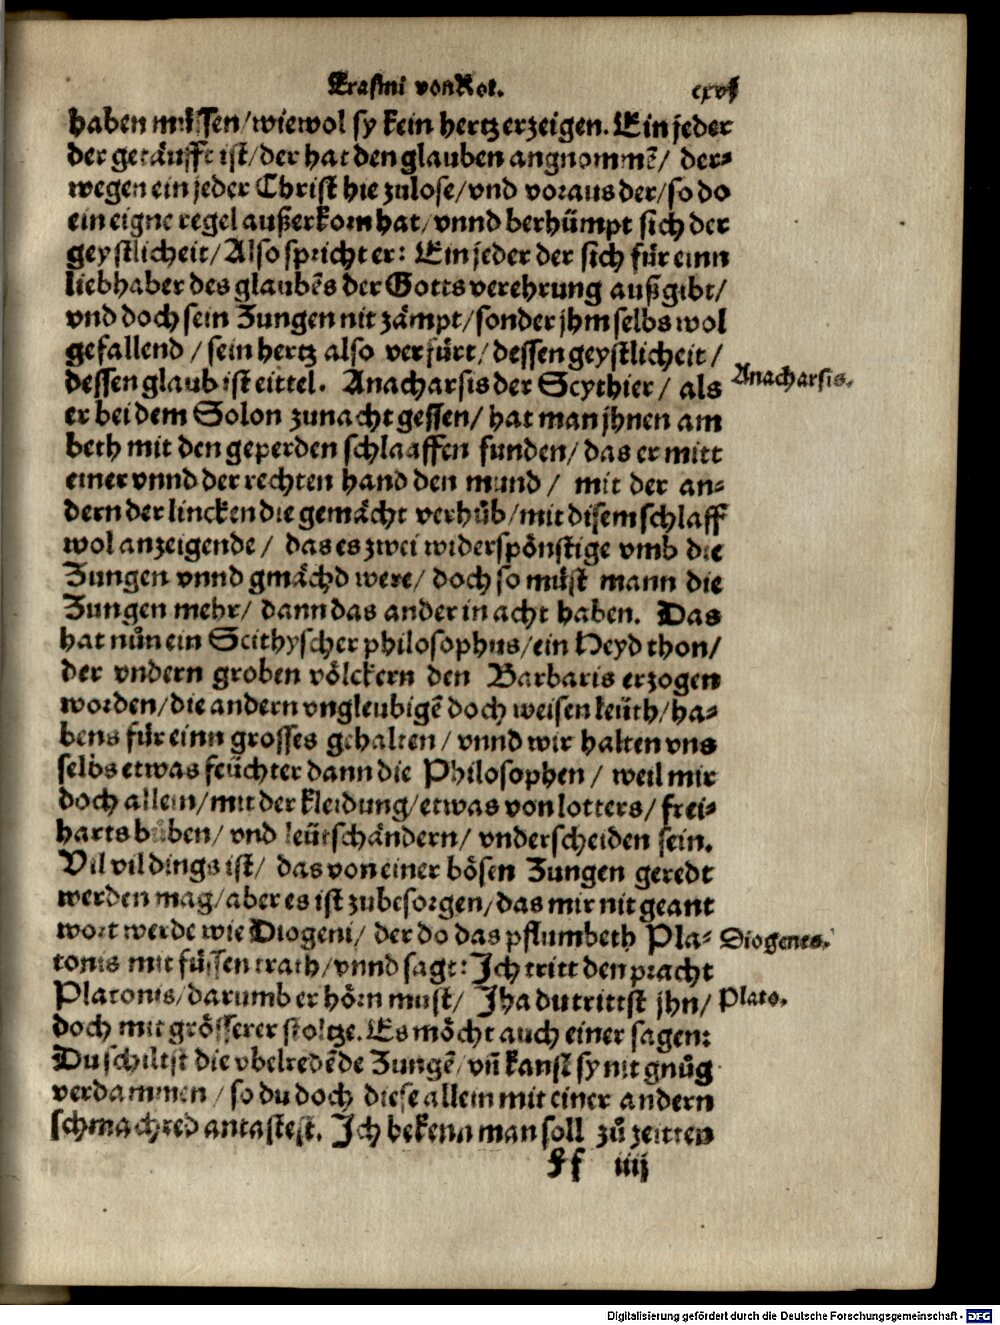 Erasmi von Rot. cxvj
haben müssen/wiewol sy kein hertz erzeigen. Ein jeder
der getäufft ist/der hat den glauben angnommē/ der⸗
wegen ein jeder Christ hie zulose/vnd voraus der/so do
ein eigne regel außerkorn hat/vnnd berhümpt sich der
geystlicheit/Also spricht er: Ein jeder der sich für einn
liebhaber des glaubēs der Gotts verehrung außgibt/
vnd doch sein Zungen nit zämpt/sonder jhm selbs wol
gefallend/sein hertz also verfürt/dessen geystlicheit/
dessen glaub ist eittel. Anacharsis der Scythier/ als
Anacharsis.
er bei dem Solon zunacht gessen/hat man jhnen am
beth mit den geperden schlaaffen funden/das er mitt
einer vnnd der rechten hand den mund/ mit der an⸗
dern der lincken die gemächt verhůb/mit disem schlaff
wol anzeigende/ das es zwei widerspönstige vmb die
Zungen vnnd gmächd were/doch so můst mann die
Zungen mehr/dann das ander in acht haben. Das
hat nůn ein Scithyscher philosophus/ein Heyd thon/
der vndern groben völckern den Barbaris erzogen
worden/die andern vngleubigē doch weisen leüth/ha⸗
bens für einn grosses gehalten/vnnd wir halten vns
selbs etwas feüchter dann die Philosophen/ weil mir
doch allein/mit der kleidung/etwas von lotters/frei⸗
harts bůben/vnd leütschändern/vnderscheiden sein.
Vil vil dings ist/ das von einer bösen Zungen geredt
werden mag/aber es ist zubesorgen/das mir nit geant
wort werde wie Diogeni/ der do das pflumbeth Pla⸗
Diogenes.
tonis mit füssen trath/vnnd sagt: Ich tritt den pracht
Platonis/darumb er hörn must/ Jha du trittst jhn/
Plato.
doch mit grösserer stoltze. Es möcht auch einer sagen:
Du schiltst die vbelredēde Zungē/vn̄ kanst sy nit gnůg
verdammen/so du doch diese allein mit einer andern
schmachred antastest. Ich bekenn man soll zů zeitten
Ff iiij
Digitalisierung gefördert durch die Deutsche Forschungsgemeinschaft - DFG